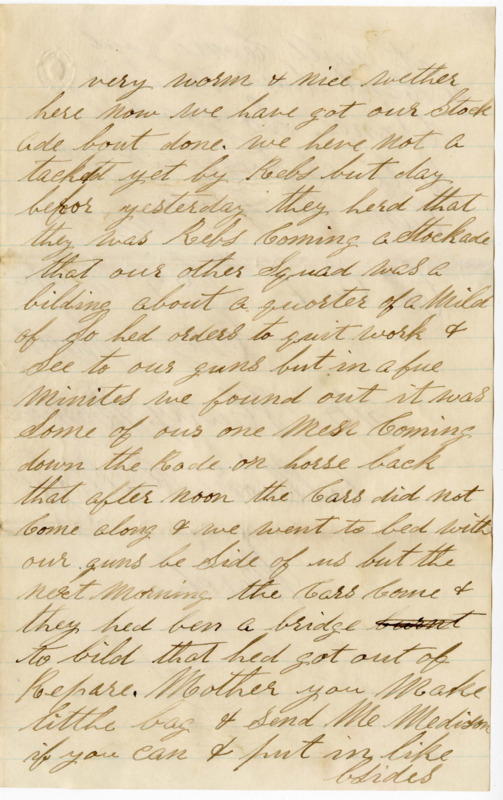 very worm & nice wether
here now we have got our Stock
ade bout done. we heve not a
tackt yet by Rebs but day
befor yesterday they herd that
they was Rebs Coming a Stockade
that our other Squad was a
bilding about a quorter of a Mild
of so hed orders to quit work &
See to our guns but in a fue
Minites we found out it was
Some of our one Men Coming
down the Rode on horse back
that after noon the Cars did not
Come along & we went to bed with
our guns be Side of us but the
next Morning the Cars Come &
they hed ben a bridge burnt
to bild that hed got out of
Repare. Mother you Make
little bag & Send Me Medison
if you can & put in like
bsides